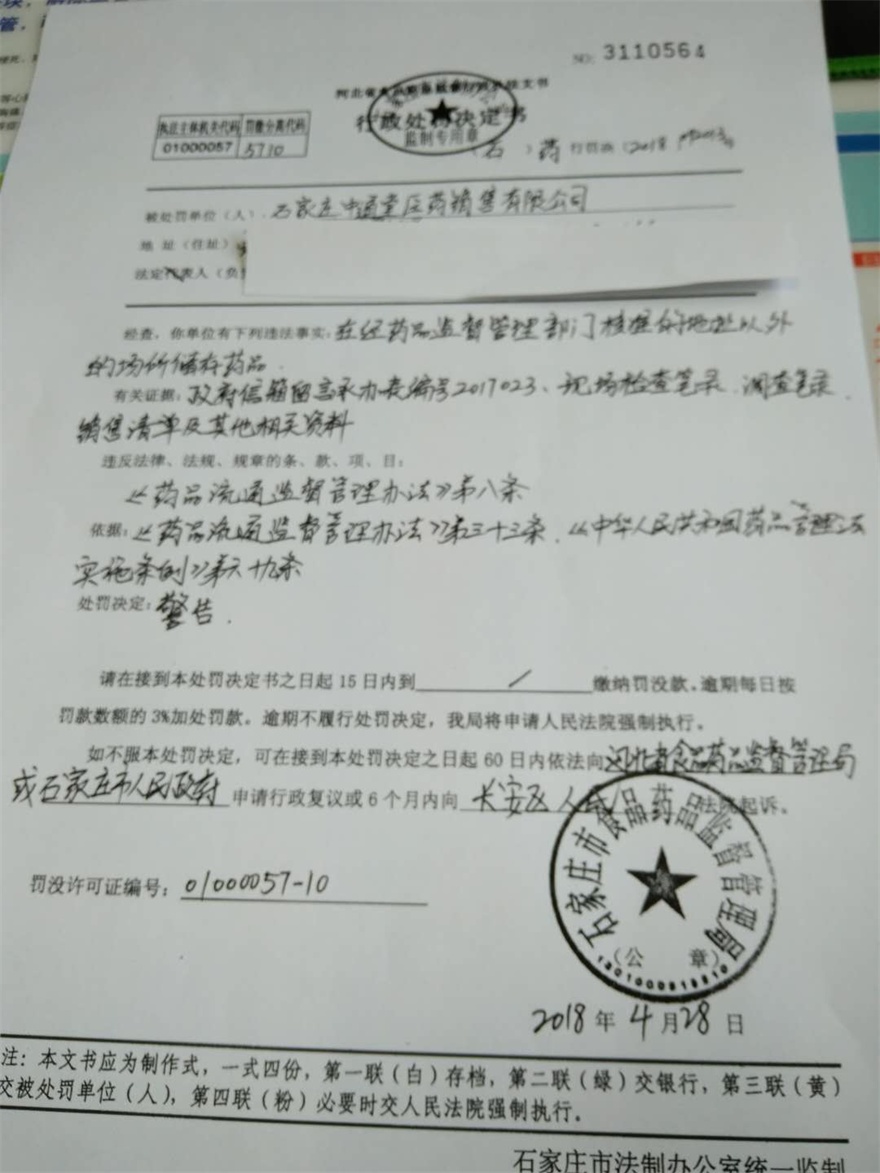 管,
NO: 3110564
河北省食品药品监督行政执法文书
行政处罚决定书
监制专用章
执法主体机关代码 罚缴分离代码
01000057 5710
(石)药 行罚决(2018
被处罚单位(人): 石家庄中通堂医药销售有限公司
地 址(住址)
法定代表人(负
经查,你单位有下列违法事实:在经药品监督管理部门核准的地址以外
的场所储存药品.
有关证据:政府信箱留言承办表编号2017023、现场检查笔录、调查笔录
销售清单及其他相关资料
违反法律、法规、规章的条、款、项、目:
《药品流通监督管理办法》第八条
依据:《药品流通监督管理办法》第三十三条、《中华人民共和国药品管理法
实施条例》第六十九条
处罚决定:警告.
请在接到本处罚决定书之日起 15 日内到 / 缴纳罚没款。逾期每日按
罚款数额的 3%加处罚款。逾期不履行处罚决定,我局将申请人民法院强制执行。
如不服本处罚决定,可在接到本处罚决定之日起 60 日内依法向河北省食品药品监督管理局
或石家庄市人民政府申请行政复议或 6 个月内向 长安区人民 法院起诉。
罚没许可证编号: 01000057-10
石家庄市食品药品监督管理局
(公 章)
2018 年 4 月 28 日
注:本文书应为制作式,一式四份,第一联(白)存档,第二联(绿)交银行,第三联(黄)
交被处罚单位(人),第四联(粉)必要时交人民法院强制执行。
石家庄市法制办公室统一监制